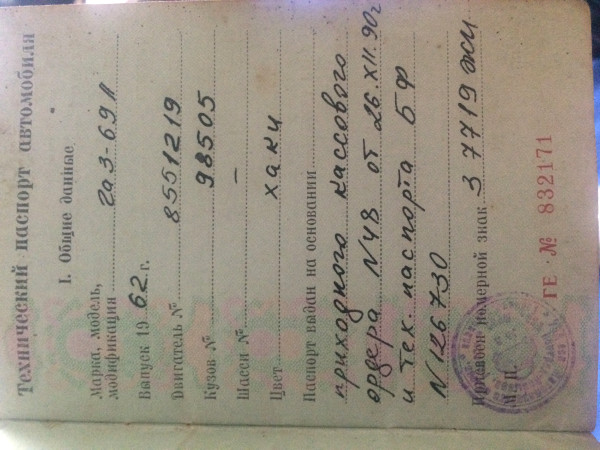 Технический паспорт автомобиля
I. Общие данные
Марка, модель,
модификация газ-69 А
Выпуск 1962 г.
Двигатель № 8551219
Кузов № 98505
Шасси № —
Цвет хаки
Паспорт выдан на основании
приходного кассового
ордера N48 от 26.XII.90г
и тех. паспорта БФ
N126730
Присвоен номерной знак З 7719 ЖИ
М. П.
ГЕ · № 832171